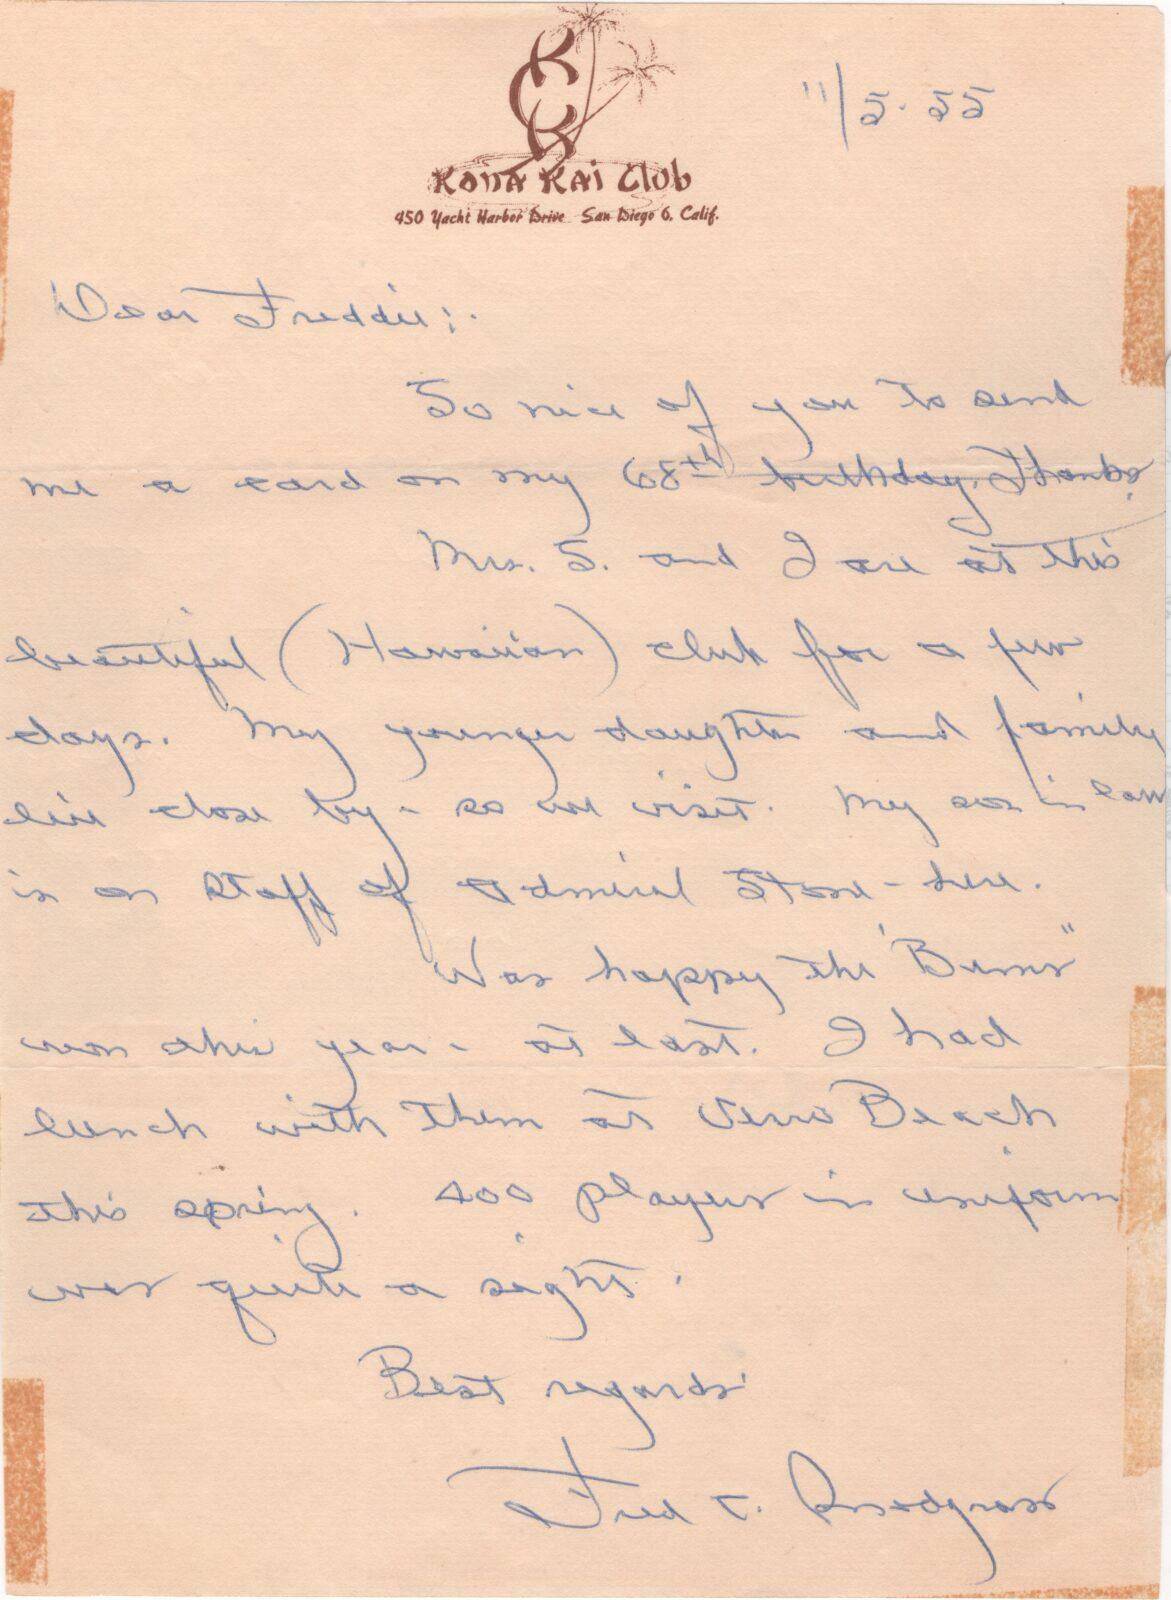 KCK
Kona Kai Club
450 Yacht Harbor Drive San Diego 6, Calif.
11/5-55
Dear Freddie;-
So nice of you to send
me a card on my 68th birthday. Thanks
Mrs. S. and I are at this
beautiful (Hawaiian) club for a few
days. My younger daughter and family
live close by - so we visit. My son in law
is on staff of Admiral Stone - here.
Was happy the "Bums"
won this year - at last. I had
lunch with them at Vero Beach
this spring. 400 players in uniform
was quite a sight.
Best regards
Fred C. Snodgrass